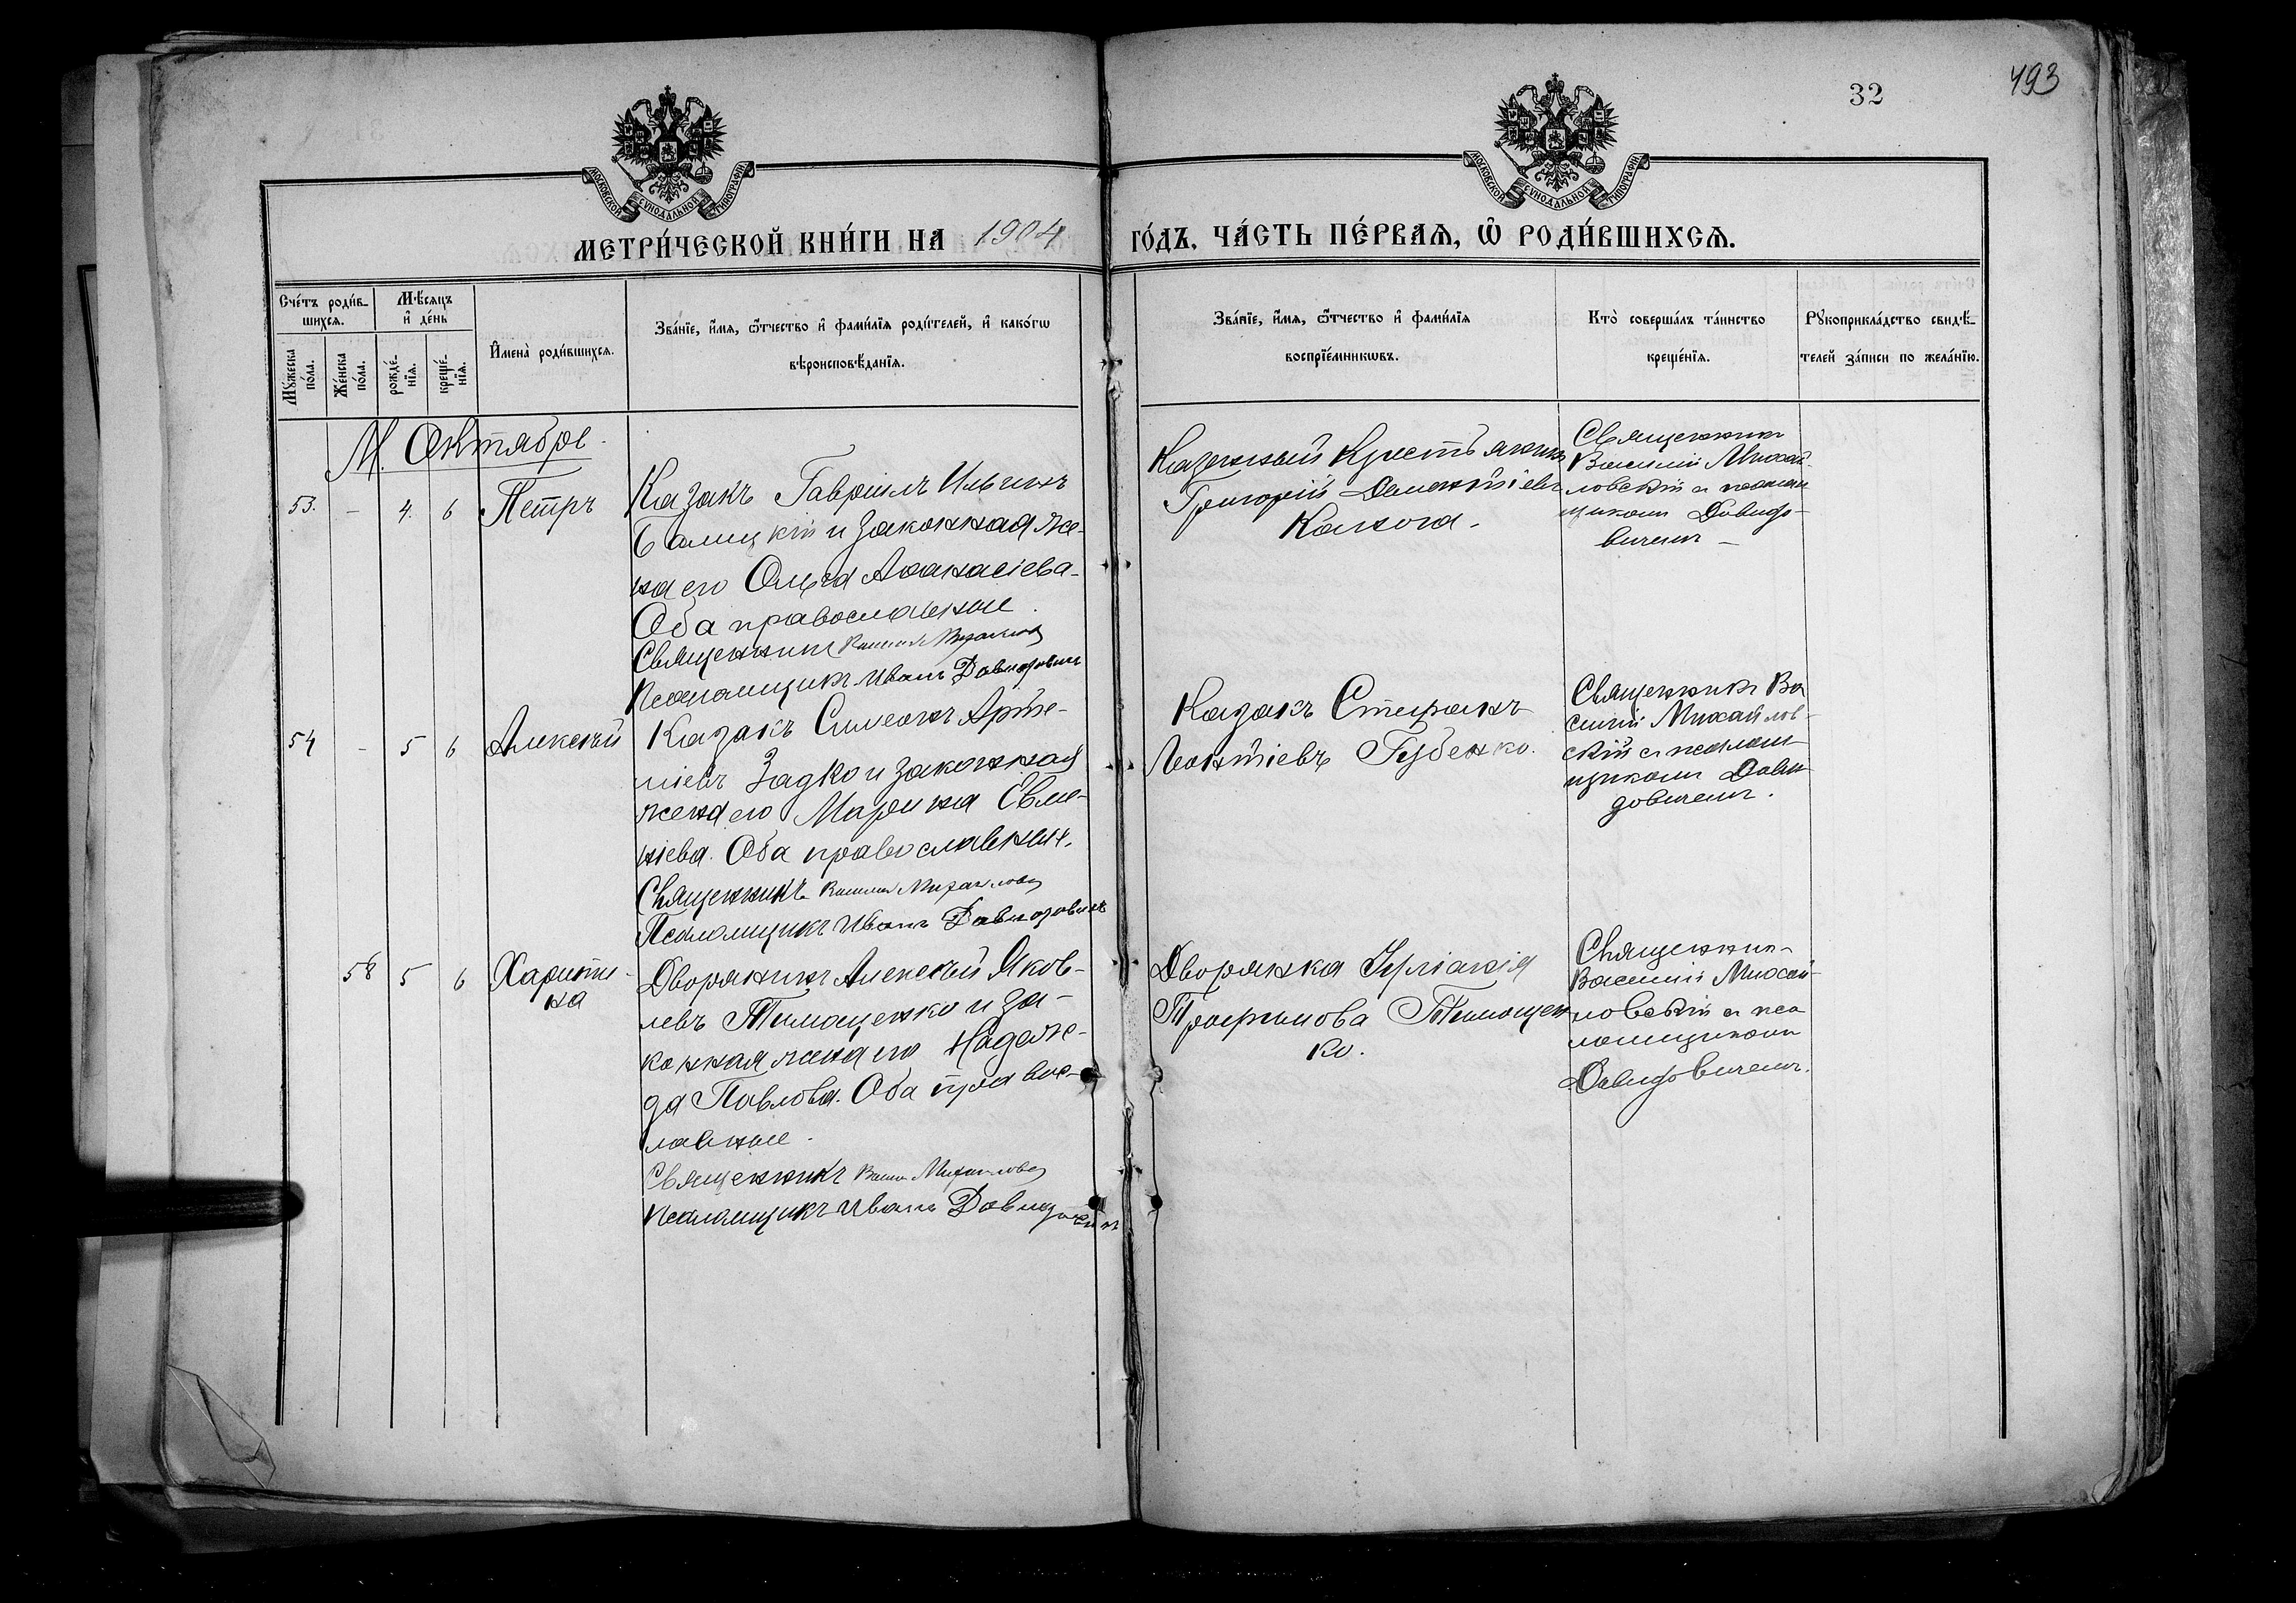 32
493
МОСКОВСКОЙ СѴНОДАЛЬНОЙ ТИПОГРАФІИ
МОСКОВСКОЙ СѴНОДАЛЬНОЙ ТИПОГРАФІИ
МЕТРИ́ЧЕСКОЙ КНИ́ГИ НА 1904 ГО́ДЪ, ЧА́СТЬ ПЕ́РВАѦ, Ѽ РОДИ́ВШИХСѦ.
Сче́тъ роди́в-
шихсѧ.
Мꙋ́жеска по́ла.
Же́нска по́ла.
Мѣ́сѧцъ
и҆ де́нь
рожде́-
нїѧ.
креще́-
нїѧ.
И҆мена̀ роди́вшихсѧ.
Зва́нїе, и҆́мѧ, ѻ҆́тчество и҆ фами́лїѧ роди́телей, и҆ како́гѡ
вѣроисповѣ́данїѧ.
Зва́нїе, и҆́мѧ, ѻ҆́тчество и҆ фами́лїѧ
воспрїе́мникѡвъ.
Кто̀ соверша́лъ та́инство
креще́нїѧ.
Рꙋкоприкла́дство свидѣ́-
телей за́писи по жела́нїю.
М. Октябрь
53. – 4. 6 Петръ
Казакъ Гавріилъ Ильинъ
Балицкій и законная же-
на его Ольга Аѳанасіева
Оба православные
Священникъ Василій Михайловскій
Псаломщикъ Иванъ Давидовичъ
Казенный Крестьянинъ
Григорій Дементіевъ
Калюга.
Священникъ
Василій Михай-
ловскій съ псалом
щикомъ Давидо-
вичемъ –
54 – 5 6 Алексѣй
Казакъ Симеонъ Арте-
міевъ Задко и законная
жена его Марина Евме-
ніева. Оба православные.
Священникъ Василій Михайловскій
Псаломщикъ Иванъ Давидовичъ
Казакъ Стефанъ
Леонтіевъ Губенко.
Священникъ Ва
силій Михайлов-
скій съ псалом-
щикомъ Дави
довичемъ.
58 5 6 Харити-
на
Дворянинъ Алексѣй Яков-
левъ Тимощенко и за-
конная жена его Надеж-
да Павлова. Оба правос-
лавные.
Священникъ Василій Михайловскій
Псаломщикъ Иванъ Давидовичъ
Дворянка Іуліанія
Трофимова Тимощен
ко.
Священник-
Василій Михай-
ловскій съ пса
ломщикомъ
Давидовичемъ.